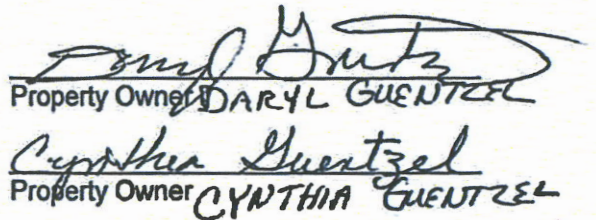 Daryl Guentzel
Property Owner DARYL GUENTZEL
Cynthia Guentzel
Property Owner CYNTHIA GUENTZEL